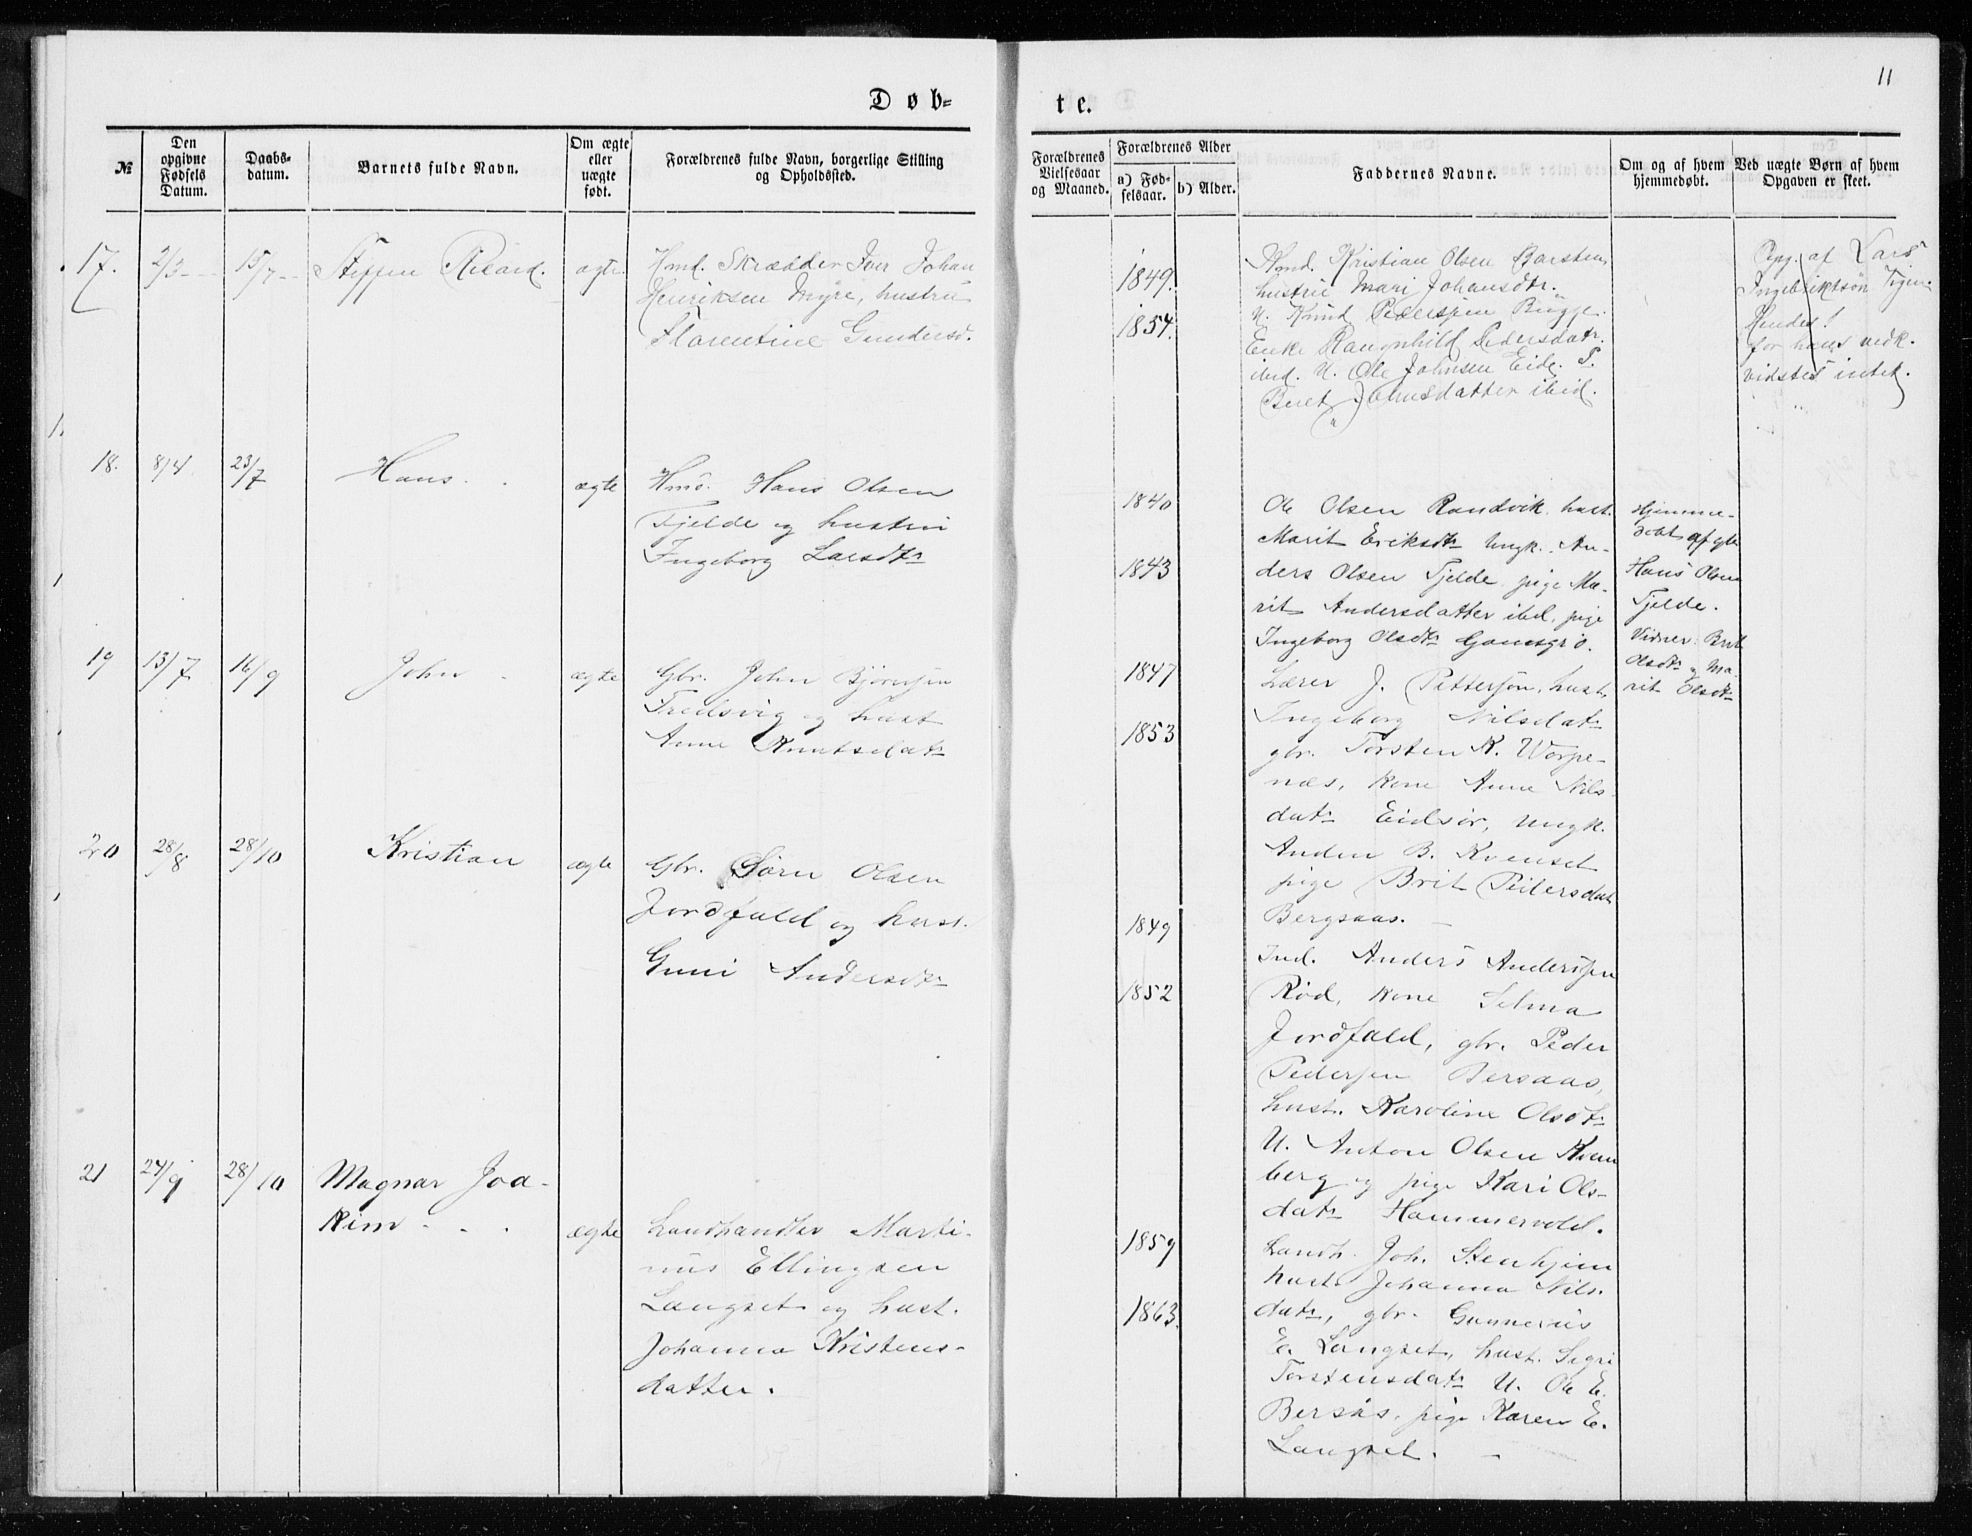 11
Døb-
te.
№
Den opgivne Fødsels Datum.
Daabs-datum.
Barnets fulde Navn.
Om ægte eller uægte født.
Forældrenes fulde Navn, borgerlige Stilling og Opholdssted.
Forældrenes Vielsesaar og Maaned.
Forældrenes Alder
a) Fødselsaar.
b) Alder.
Faddernes Navne.
Om og af hvem hjemmedøbt.
Ved uægte Børn af hvem Opgaven er skeet.
17.
2/3
15/7
Steffen Rikard.
ægte
Hmd. Skrædder Iver Johan
Henriksen Myre, hustru
Florentine Gundersd.
1849.
1854.
Hmd. Kristian Olsen Barsten,
hustru Mari Johansdtr.
U. Knud Pederssen Bugge.
Enke Rangnhild Pedersdatr.
ibid. U. Ole Johnsen Eide. P.
Beret Johnsdatter ibid.
Opg. af Lars
Ingebriktsøn
for hans vedk.
vidstes intet.
18.
8/4
23/7
Hans
ægte
Hmd. Hans Olsen
Fjelde og hustru
Ingeborg Larsdtr
1840
1843
Ole Olsen Randvik, hust.
Marit Eriksdtr Ungk. An-
ders Olsen Fjelde, pige Ma-
rit Andersdatter ibd, pige
Ingeborg Olsdtr
Hjemme-
døbt af
Hans Olsen
Fjelde.
Vidner: Brit
Olsdtr og Ma-
rit Olsdtr
19
13/7
16/9
John
ægte
Gbr. John Bjørnsen
Fredsvig og hust
Anne Knutsdatr
1847
1853
Lærer J. Pettersøn, hust.
Ingeborg Nilsdatr
gbr. Torsten K. Worpe-
næs, kone Anne Nils-
datr Eidsør, Ungk.
Anders B. Kvenset
pige Brit Pedersdat
Bergsaas.
20
28/8
28/10
Kristian
ægte
Gbr. Sørn Olsen
Jordfald og hust.
Guni Andersdtr
1849
1852
Ind. Anders Anderssen
Rød, kone Selma
Jordfald, gbr. Peder
Pedersen Bersaas,
hust. Karoline Olsdtr
U. Anton Olsen Kvern
berg og pige Kari Ols-
datr Hammervold.
21
24/9
28/10
Magnar Joa-
kim
ægte
Landhandler Marti-
nus Ellingsen
Langset og hust.
Johanna Kristens-
datter.
1859
1863.
Landh. Joh. Stenhjem
hust. Johanna Nils-
datr, gbr. Gunnerius
E. Langset, hust. Sigri
Torstensdatr U. Ole E.
Bersås, pige Karen E.
Langset.